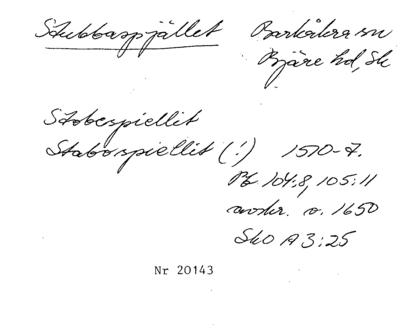 Stubbaspjället Barkåkra sn
Bjäre hd, Sk
Stobespiellit
Stabospiellit (!) 1570-t.
Pb 104:8, 105:11
avskr. o. 1650
SkO A3:25
Nr 20143